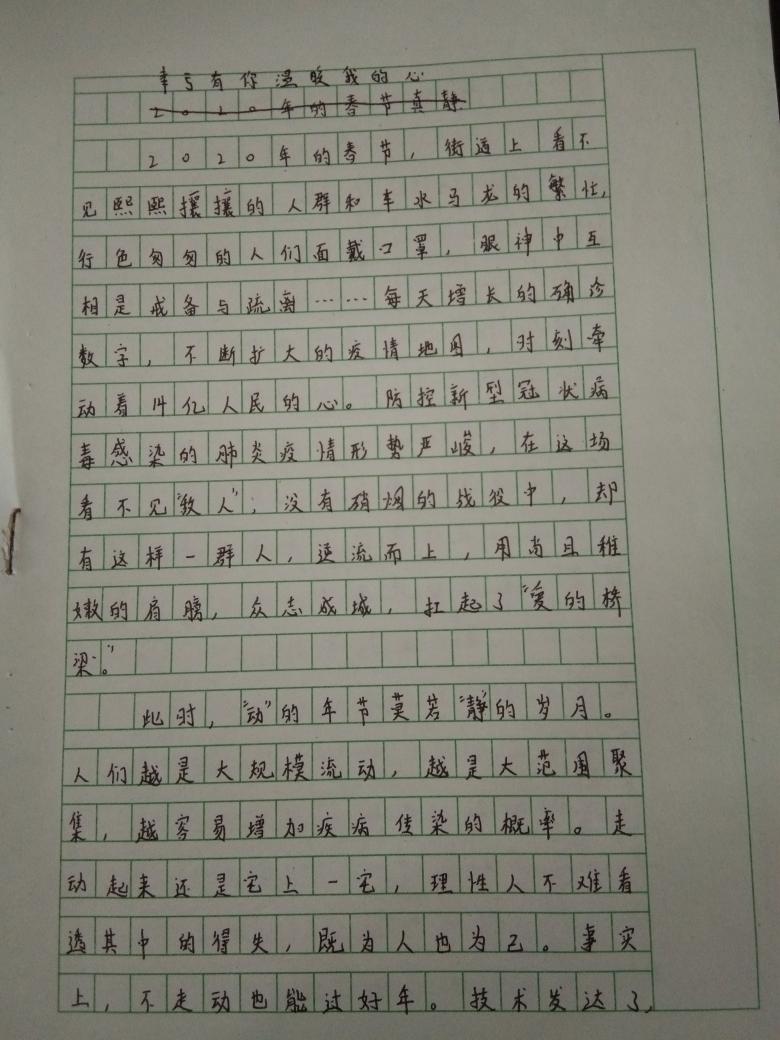 幸亏有你温暖我的心
2020年的春节真静
2020年的春节，街道上看不
见熙熙攘攘的人群和车水马龙的繁忙，
行色匆匆的人们面戴口罩，眼神中互
相是戒备与疏离……每天增长的确诊
数字，不断扩大的疫情地图，时刻牵
动着14亿人民的心。防控新型冠状病
毒感染的肺炎疫情形势严峻，在这场
看不见“敌人”；没有硝烟的战役中，却
有这样一群人，逆流而上，用尚且稚
嫩的肩膀，众志成城，扛起了“爱的桥
梁”。
此时，“动”的年节莫若“静”的岁月。
人们越是大规模流动，越是大范围聚
集，越容易增加疾病传染的概率。走
动起来还是宅上一宅，理性人不难看
透其中的得失，既为人也为己。事实
上，不走动也能过好年。技术发达了，